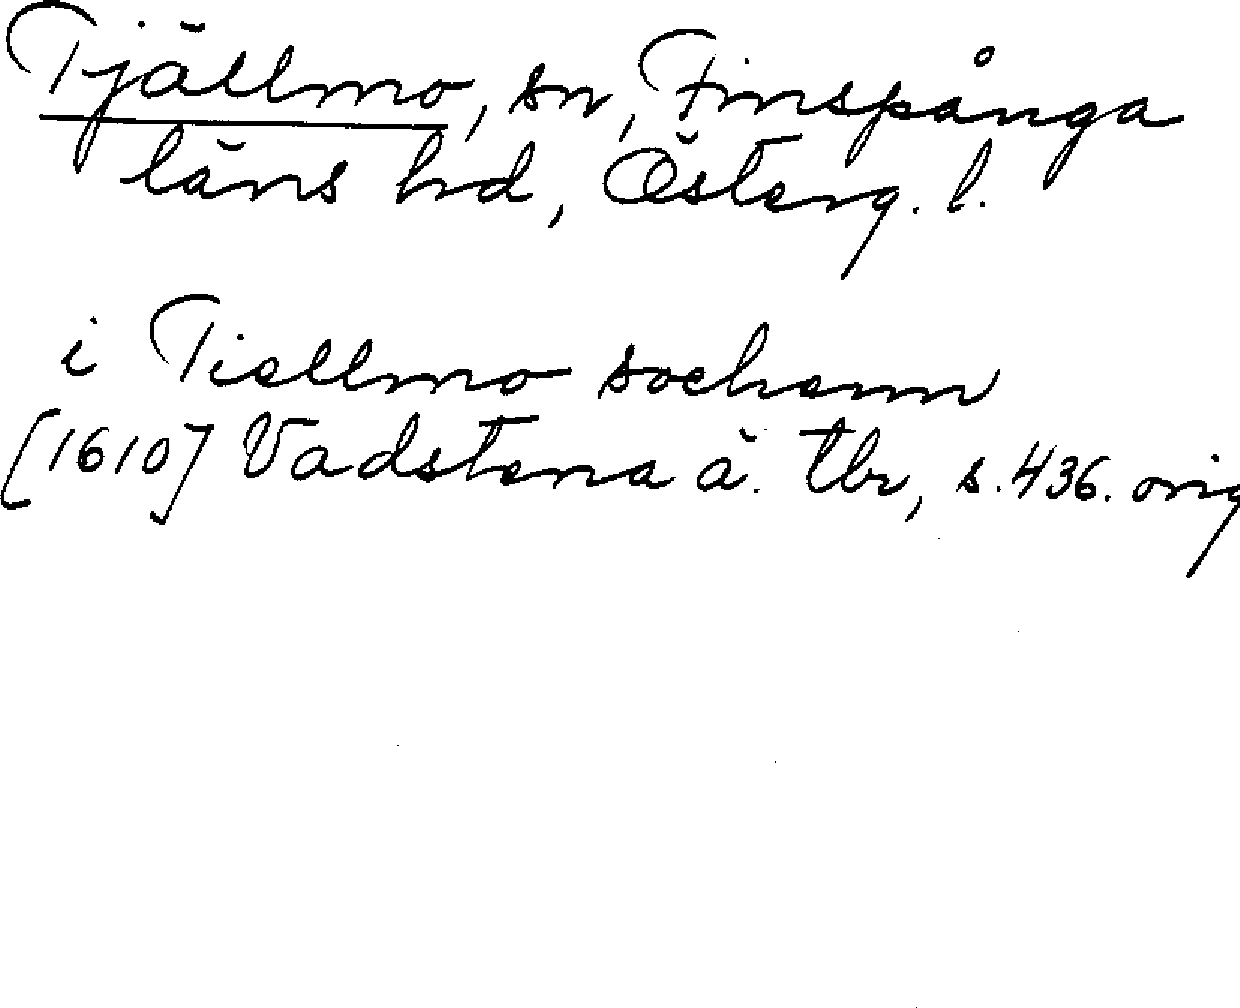 Tjällmo, sn, Finspånga
läns hd, Österg. l.
i Tiellmo sochenn
[1610] Vadstena ä. tbr, s. 436. orig